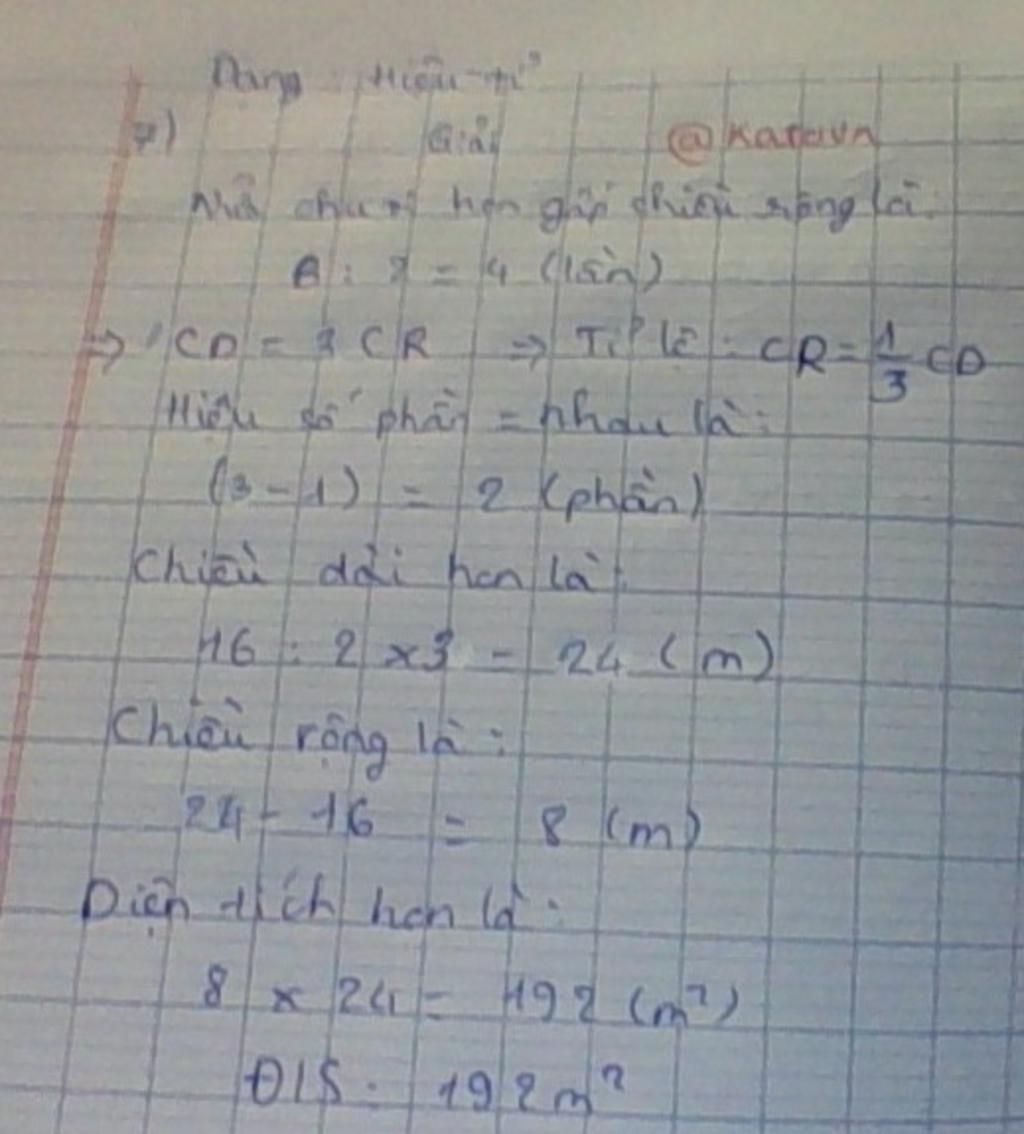 Dạng : Hiệu-tỉ
7) Giải @Karaivn
Nửa chu vi hcn gấp chiều rộng là:
8 : 2 = 4 (lần)
=> CD = 3 CR => Tỉ lệ : CR = 1/3 CD
Hiệu số phần = nhau là:
(3-1) = 2 (phần)
Chiều dài hcn là:
16 : 2 x 3 = 24 (m)
Chiều rộng là :
24 - 16 = 8 (m)
Diện tích hcn là :
8 x 24 = 192 (m²)
Đ/S : 192 m²